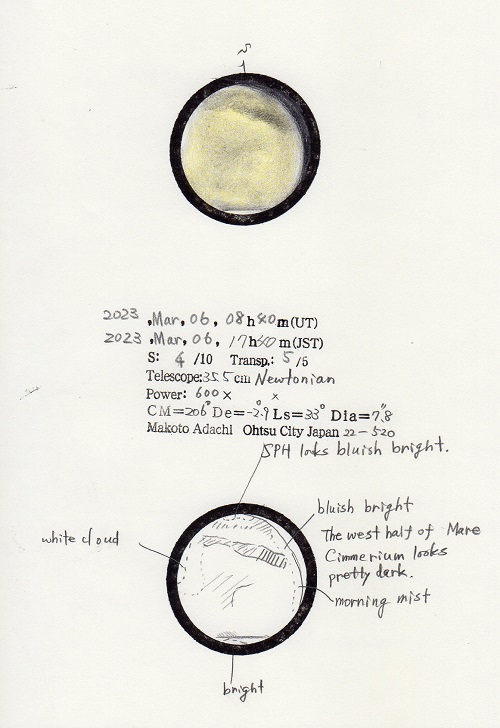 S
2023 ,Mar, 06, 08h40m(UT)
2023 ,Mar, 06, 17h40m(JST)
S: 4 /10 Transp.: 5 /5
Telescope:35.5cm Newtonian
Power: 600× ×
CM=206° De=-2.9° Ls=33° Dia=7.8"
Makoto Adachi Ohtsu City Japan 22-520
SPH looks bluish bright.
bluish bright
white cloud
The west half of Mare
Cimmerium looks
pretty dark.
morning mist
bright